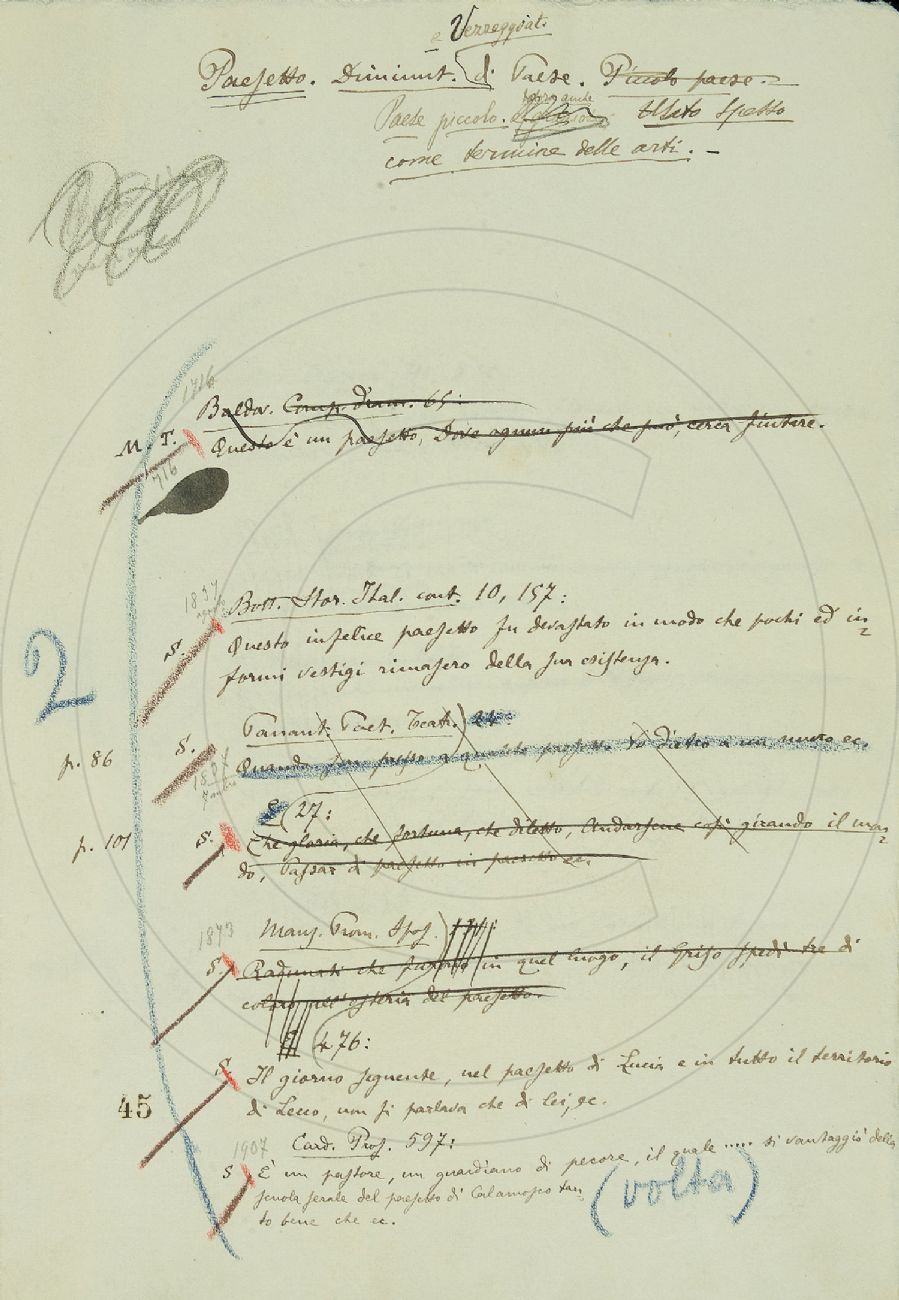 e Vezzeggiat.
Paesetto. Diminut. di Paese. Piccolo paese. =
Paese piccolo. Usato spesso
come termine delle arti. —
1716
Baldov. Comp. dram. 65:
M. T. Questo è un paesetto, dove ognun più che può, cerca
716
1837
Bott. Stor. Ital. cont. 10, 157:
S. Questo infelice paesetto fu devastato in modo che pochi ed in=
formi vestigi rimasero della sua esistenza.
2
Tanant. Poet. Teatr. 24
S.
p. 86 Quando son presso a qualche paesetto Vo dietro a un muro ec.
1807
E 27:
p. 101 S. Che gloria, che fortuna, che diletto, Andarsene così girando il mon=
do, Passar di paesetto in paesetto ec.
1873 Manz. Prom. Spos.
S. Radunati che furono in quel luogo, il Griso spedì tre di
coloro all'osteria del paesetto.
E 476:
S. Il giorno seguente, nel paesetto di Lucia e in tutto il territorio
di Lecco, non si parlava che di lei, ec.
45
1907 Card. Pros. 597:
S È un pastore, un guardiano di pecore, il quale ..... si vantaggiò della
scuola serale del paesetto di Calamosco tan
to bene che ec.
(volta)